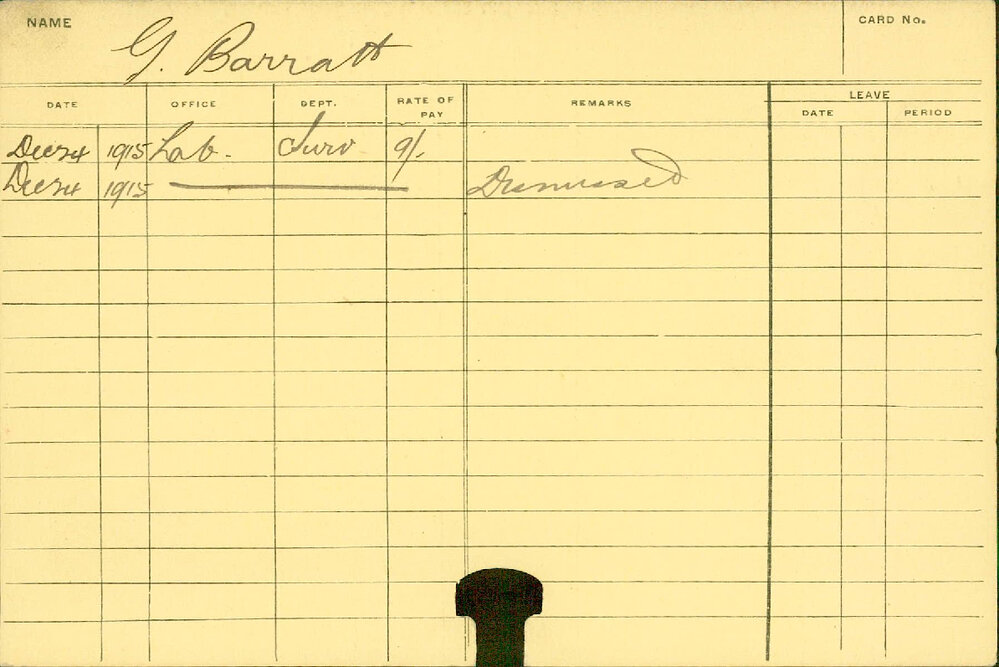 NAME
CARD No.
G. Barratt
DATE OFFICE DEPT. RATE OF PAY REMARKS LEAVE
DATE PERIOD
Dec 24 1915 Lab. Surv 9/.
Dec 24 1915 Dismissed